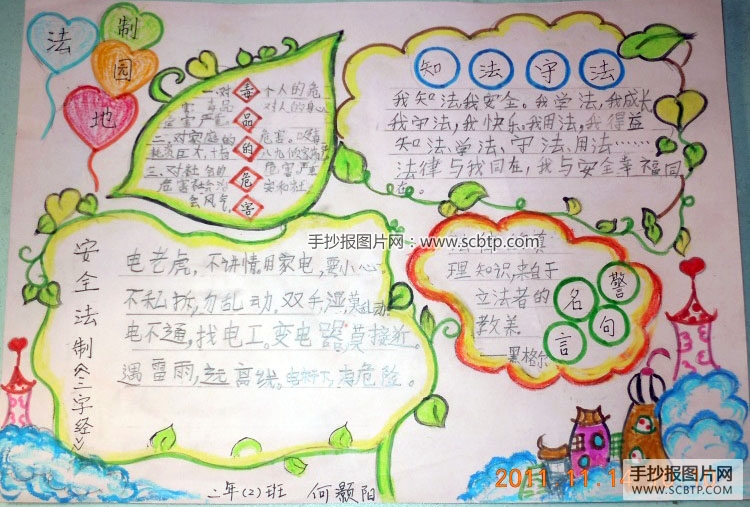 法
制
园
地
毒品的危害
一、对个人的危
害 毒品 对人的身心
危害严
二、对家庭的危害。
三、对社会的危害严
会风气。
知法守法
我知法,我安全。我学法,我成长
我守法,我快乐。我用法,我得益
知法、学法、守法、用法……
法律与我同在,我与安全幸福同
在。
手抄报图片网:www.scbtp.com
安全法制《三字经》
电老虎,不讲情。用家电,要小心
不私拆,勿乱动。双手湿,莫乱动。
电不通,找电工。变电器莫接近。
遇雷雨,远离线。电杆下,有危险。
理知识,来自于
立法者的
教养。
——黑格尔
名言警句
二年(2)班 何颢阳
2011.11.14
手抄报图片网
WWW.SCBTP.COM